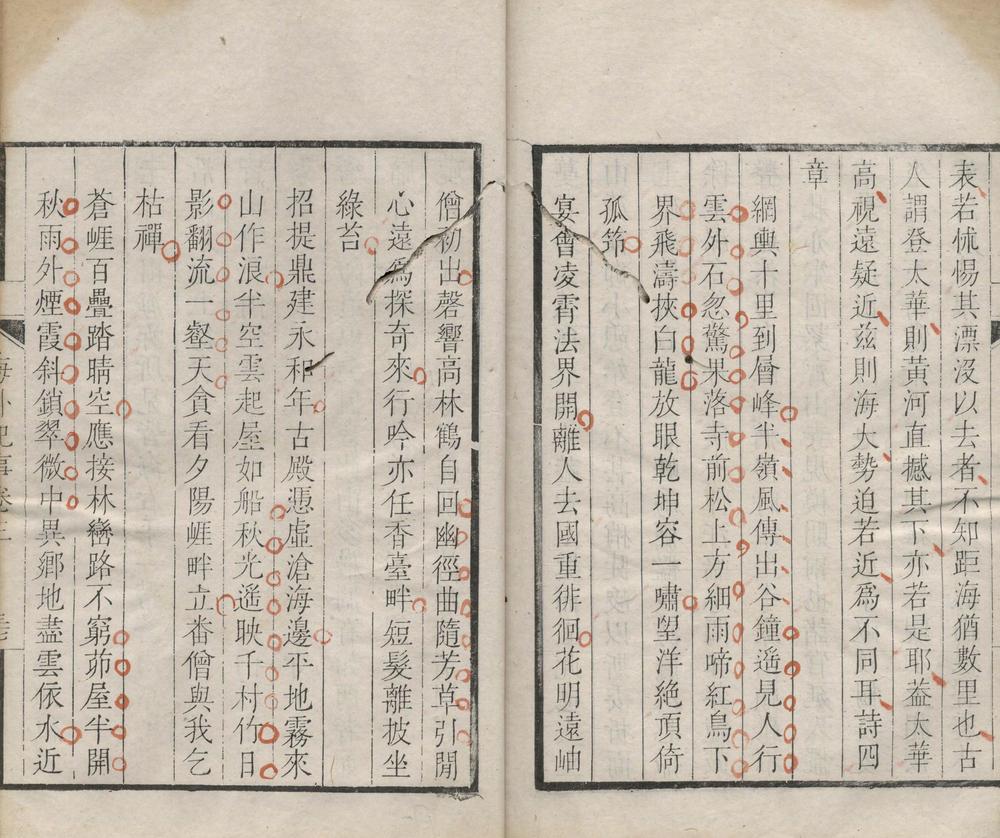 表若怵惕其漂沒以去者不知距海猶數里也古
人謂登太華則黃河直撼其下亦若是耶葢太華
高視遠疑近茲則海大勢迫若近爲不同耳詩四
章
網輿十里到層峰半嶺風傳出谷鐘遥見人行
雲外石忽驚果落寺前松上方細雨啼紅鳥下
界飛濤挾白龍放眼乾坤容一嘯望洋絶頂倚
孤筇
宴會凌霄法界開離人去國重徘徊花明遠岫
僧初出磬響高林鶴自回幽徑曲隨芳草引閒
心遠爲探奇來行吟亦任香臺畔短髮離披坐
綠苔
招提鼎建永和年古殿憑虛滄海邊平地霧來
山作浪半空雲起屋如船秋光遙映千村竹日
影翻流一壑天貪看夕陽崕畔立畨僧與我乞
枯禪
蒼崕百疊踏晴空應接林巒路不窮茆屋半開
秋雨外煙霞斜鎖翠微中異鄉地盡雲依水近
海外紀事卷三